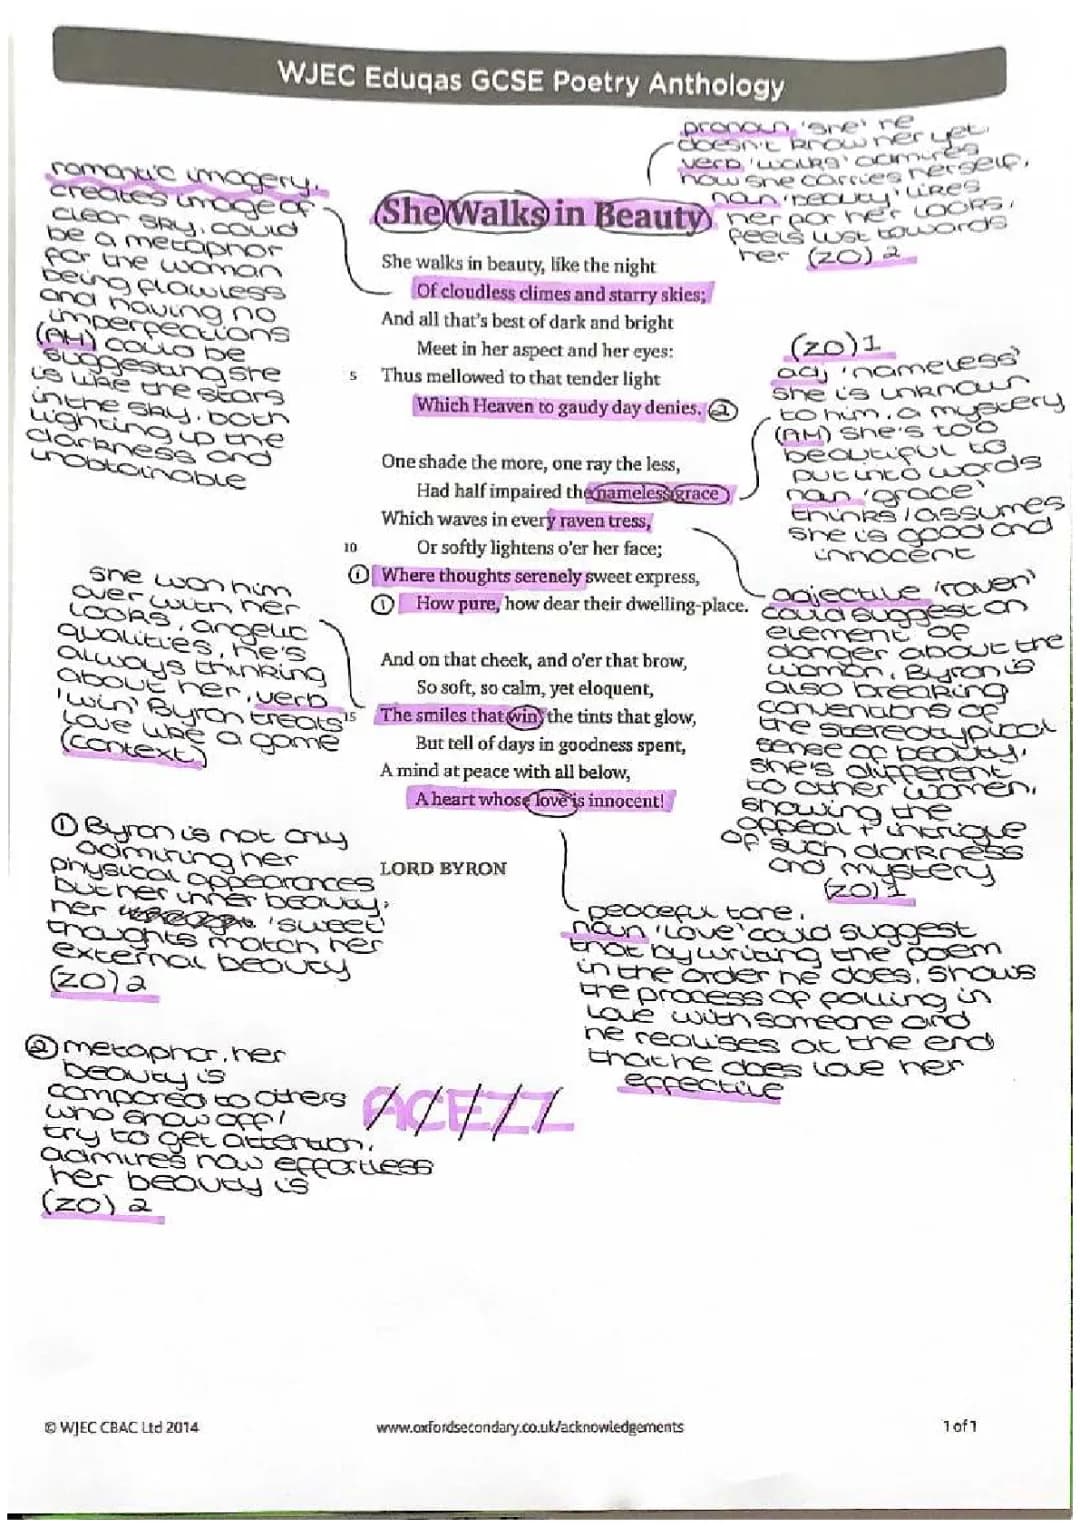 WJEC Eduqas GCSE Poetry Anthology
pronoun 'she' he
doesn't know her yet.
verb 'walks' admires
how she carries herself.
noun 'beauty' likes
her for her looks.
feels lust towards
her (ZO) 2
romantic imagery.
creates image of
clear sky. could
be a metaphor
for the woman
being flawless
and having no
imperfections
(AM) could be
suggesting she
is like the stars
in the sky. both
lighting up the
darkness and
unobtainable
She Walks in Beauty
She walks in beauty, like the night
Of cloudless climes and starry skies;
And all that's best of dark and bright
Meet in her aspect and her eyes:
5 Thus mellowed to that tender light
Which Heaven to gaudy day denies. 2
One shade the more, one ray the less,
Had half impaired the nameless grace
Which waves in every raven tress,
10 Or softly lightens o'er her face;
1 Where thoughts serenely sweet express,
1 How pure, how dear their dwelling-place.
And on that cheek, and o'er that brow,
So soft, so calm, yet eloquent,
15 The smiles that win, the tints that glow,
But tell of days in goodness spent,
A mind at peace with all below,
A heart whose love is innocent!
LORD BYRON
(ZO) 1
adj 'nameless'
she is unknown
to him, a mystery
(AM) she's too
beautiful to
put into words
noun 'grace'
thinks/assumes
she is good and
innocent
adjective 'raven'
could suggest an
element of
danger about the
woman. Byron is
also breaking
conventions of
the stereotypical
sense of beauty.
she's different
to other women.
showing the
appeal + intrigue
of such darkness
and mystery
(ZO) 1
she won him
over with her
looks, angelic
qualities, he's
always thinking
about her. verb
'win' Byron treats
love like a game
(context)
1 Byron is not only
admiring her
physical appearances
but her inner beauty.
her 'sweet'
thoughts match her
external beauty
(ZO) 2
peaceful tone.
noun 'love' could suggest
that by writing the poem
in the order he does. shows
the process of falling in
love with someone and
he realises at the end
that he does love her
effective
2 metaphor. her
beauty is
compared to others
who show off/
try to get attention.
admires how effortless
her beauty is
(ZO) 2
ACEZZ
© WJEC CBAC Ltd 2014
www.oxfordsecondary.co.uk/acknowledgements
1 of 1